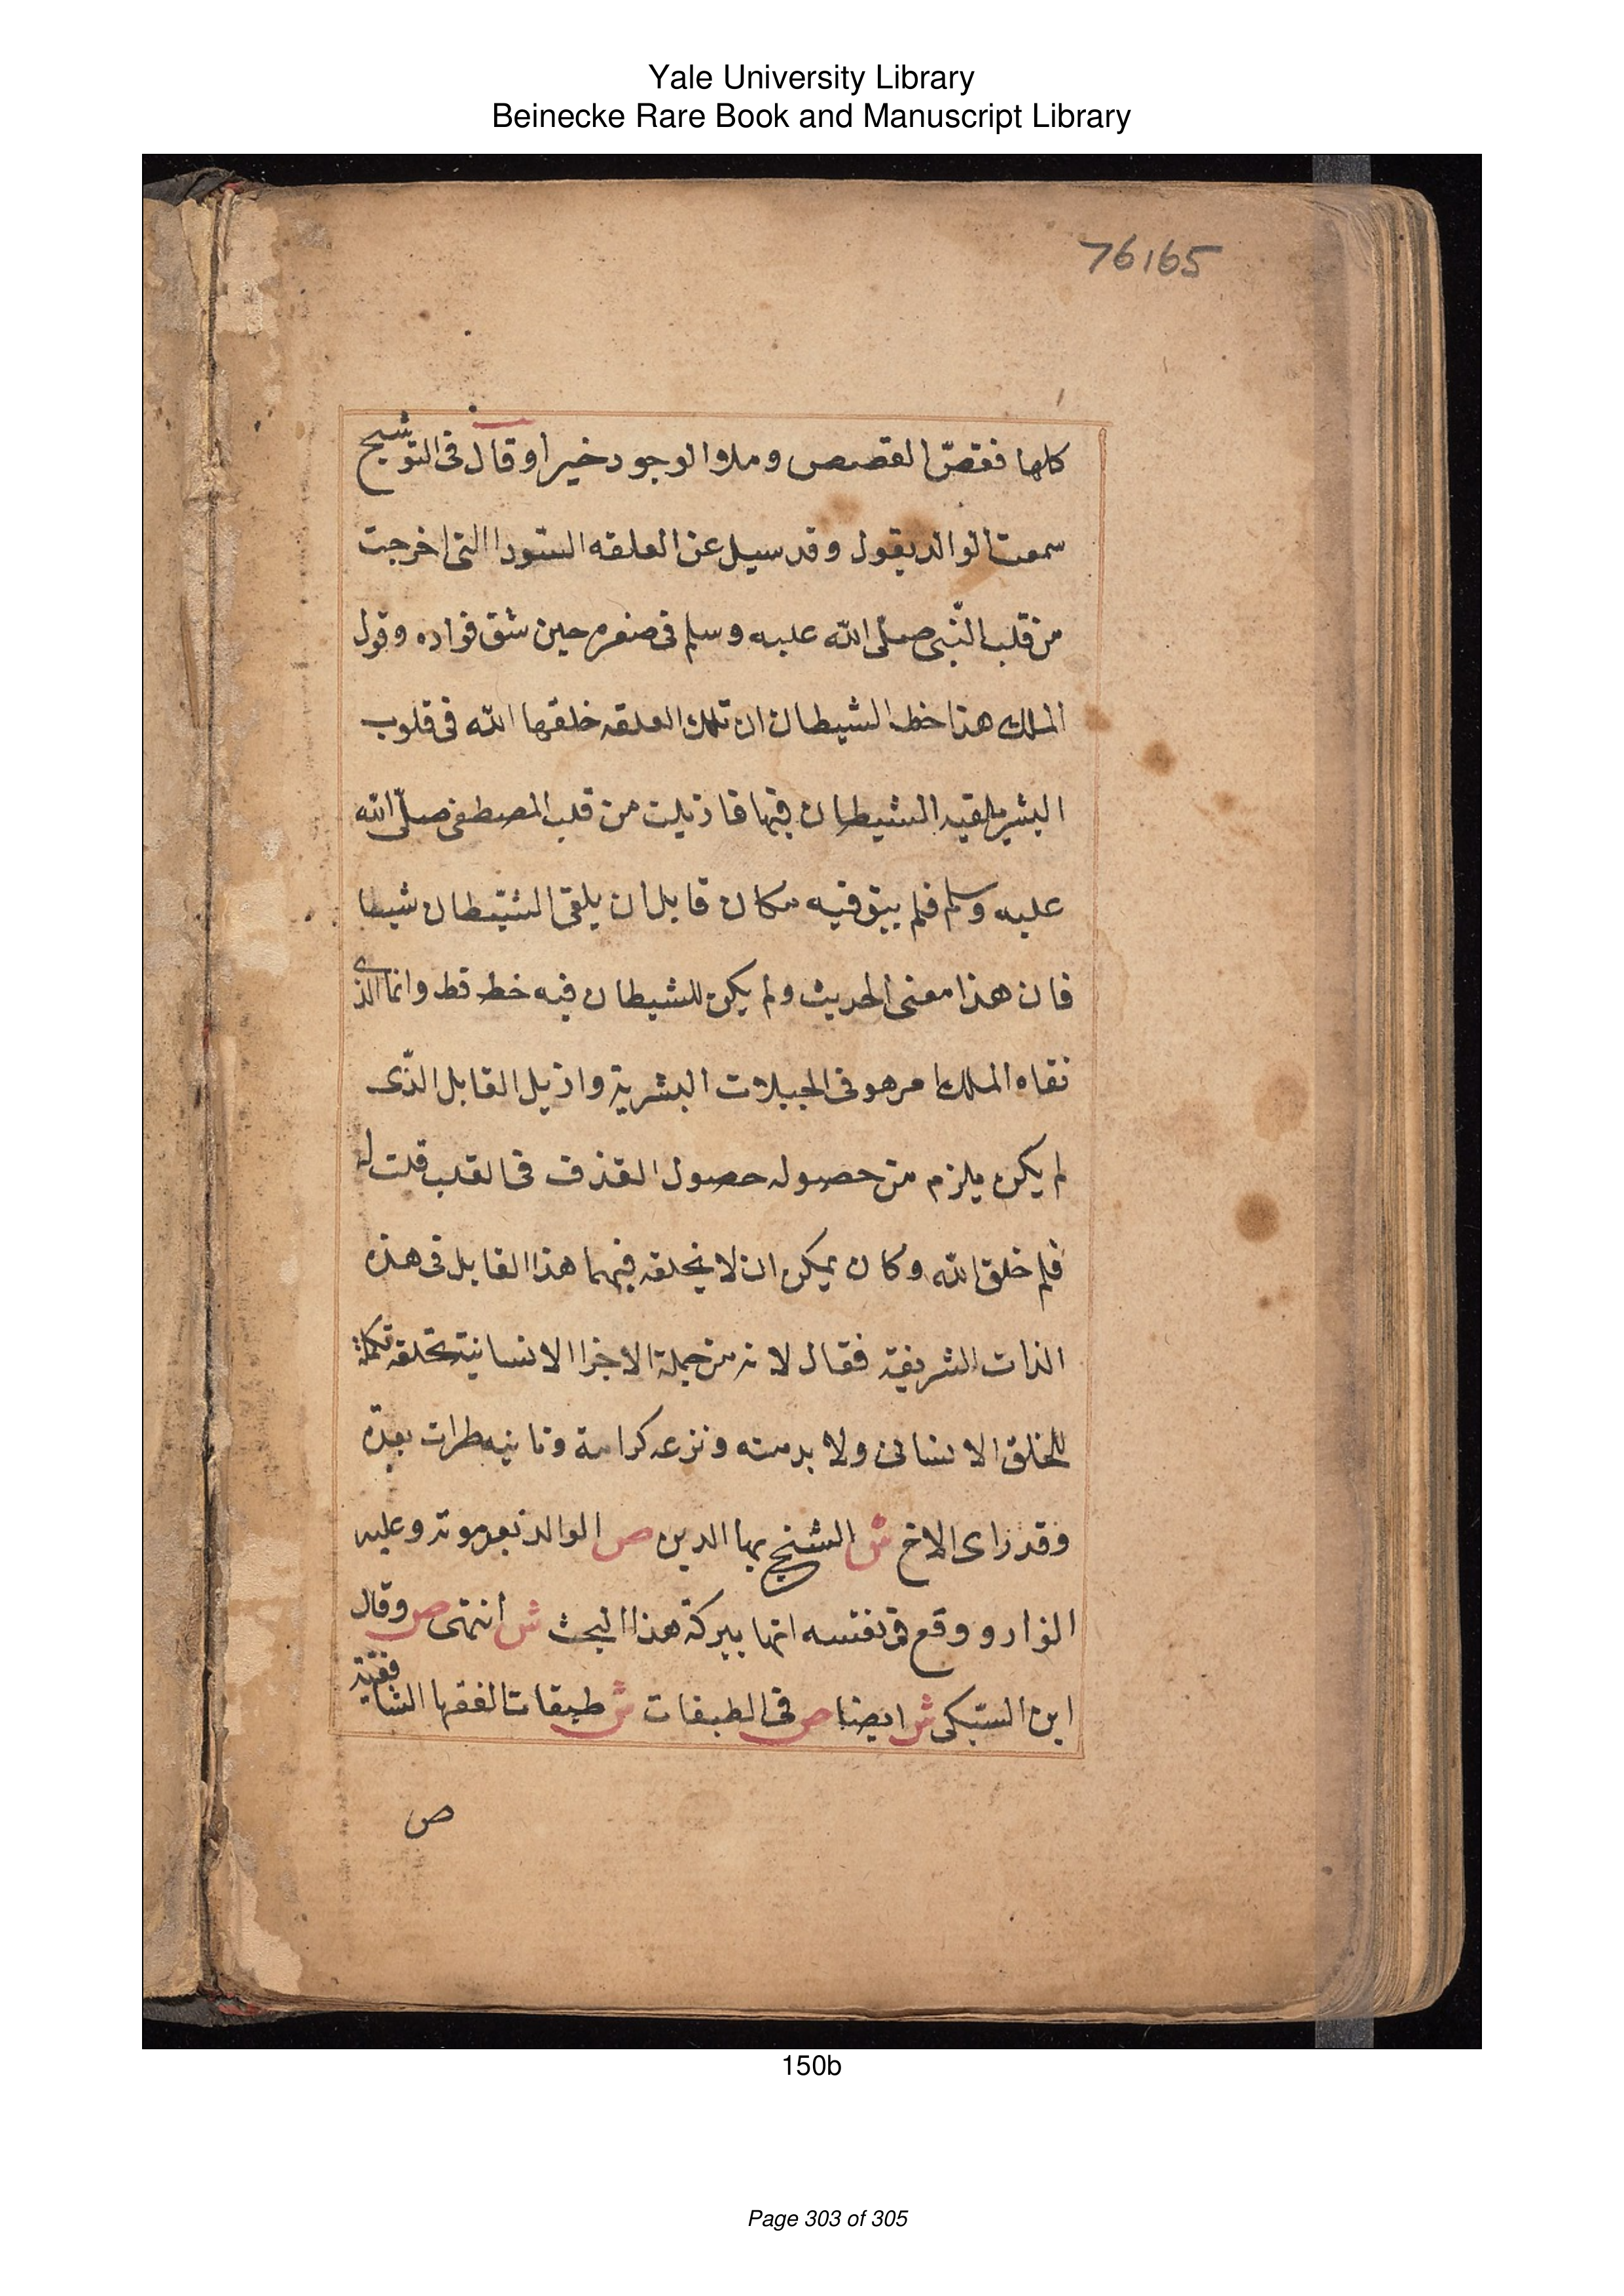 Yale University Library
Beinecke Rare Book and Manuscript Library
76165
كلها فقصّ القصص وملاوا الوجود خيرا وقال فى التوشيح
سمعت الوالد يقول وقد سيل عن العلقه السّودا التى اخرجت
من قلب النّبى صلّى الله عليه وسلم فى صغره حين شق فواده وقول
الملك هذا خط الشيطان ان تلك العلقه خلقها الله فى قلوب
البشر يلقيه الشيطان فيها فازيلت من قلب المصطفى صلّى الله
عليه وسلم فلم يبق فيه مكان قابل ان يلقى الشيطان شيطا
فان هذا معنى الحديث ولم يكن للشيطان فيه خط قط وانما الذى
نقاه الملك امر هو فى الجبلات البشرية وازيل القابل الذّى
لم يكن يلزم من حصوله حصول القذف فى القلب قلت له
فلم خلق الله وكان يمكن ان لا يخلقه فيهما هذا القابل فى هذه
الذات الشريفة فقال لانه من جملة الاجزا الانسانية تخلقه تكملة
للخلق الانسانى ولا بد منه ونزعه كرامة وتانيه طرات بعده
وقد راى الاخ ش الشيخ بها الدين ص الوالد بعد موته وعليه
انوار ووقع فى نفسه انها ببركة هذا البحث ش انتهى ص وقال
ابن السّبكى ش ايضا ص فى الطبقات ش طبقات الفقها الشافعية
ص
150b
Page 303 of 305